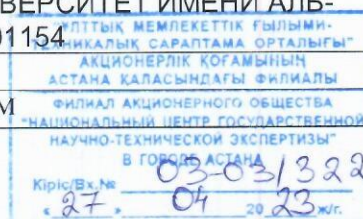 ВЕРСИТЕТ ИМЕНИ АЛЬ-
01154
ҰЛТТЫҚ МЕМЛЕКЕТТІК ҒЫЛЫМИ-
ТЕХНИКАЛЫҚ САРАПТАМА ОРТАЛЫҒЫ"
АКЦИОНЕРЛІК ҚОҒАМЫНЫҢ
АСТАНА ҚАЛАСЫНДАҒЫ ФИЛИАЛЫ
М
ФИЛИАЛ АКЦИОНЕРНОГО ОБЩЕСТВА
"НАЦИОНАЛЬНЫЙ ЦЕНТР ГОСУДАРСТВЕННОЙ
НАУЧНО-ТЕХНИЧЕСКОЙ ЭКСПЕРТИЗЫ"
В ГОРОДЕ АСТАНА
Кіріс/Вх.№ 03-03/322
"27" 04 20 23 ж/г.